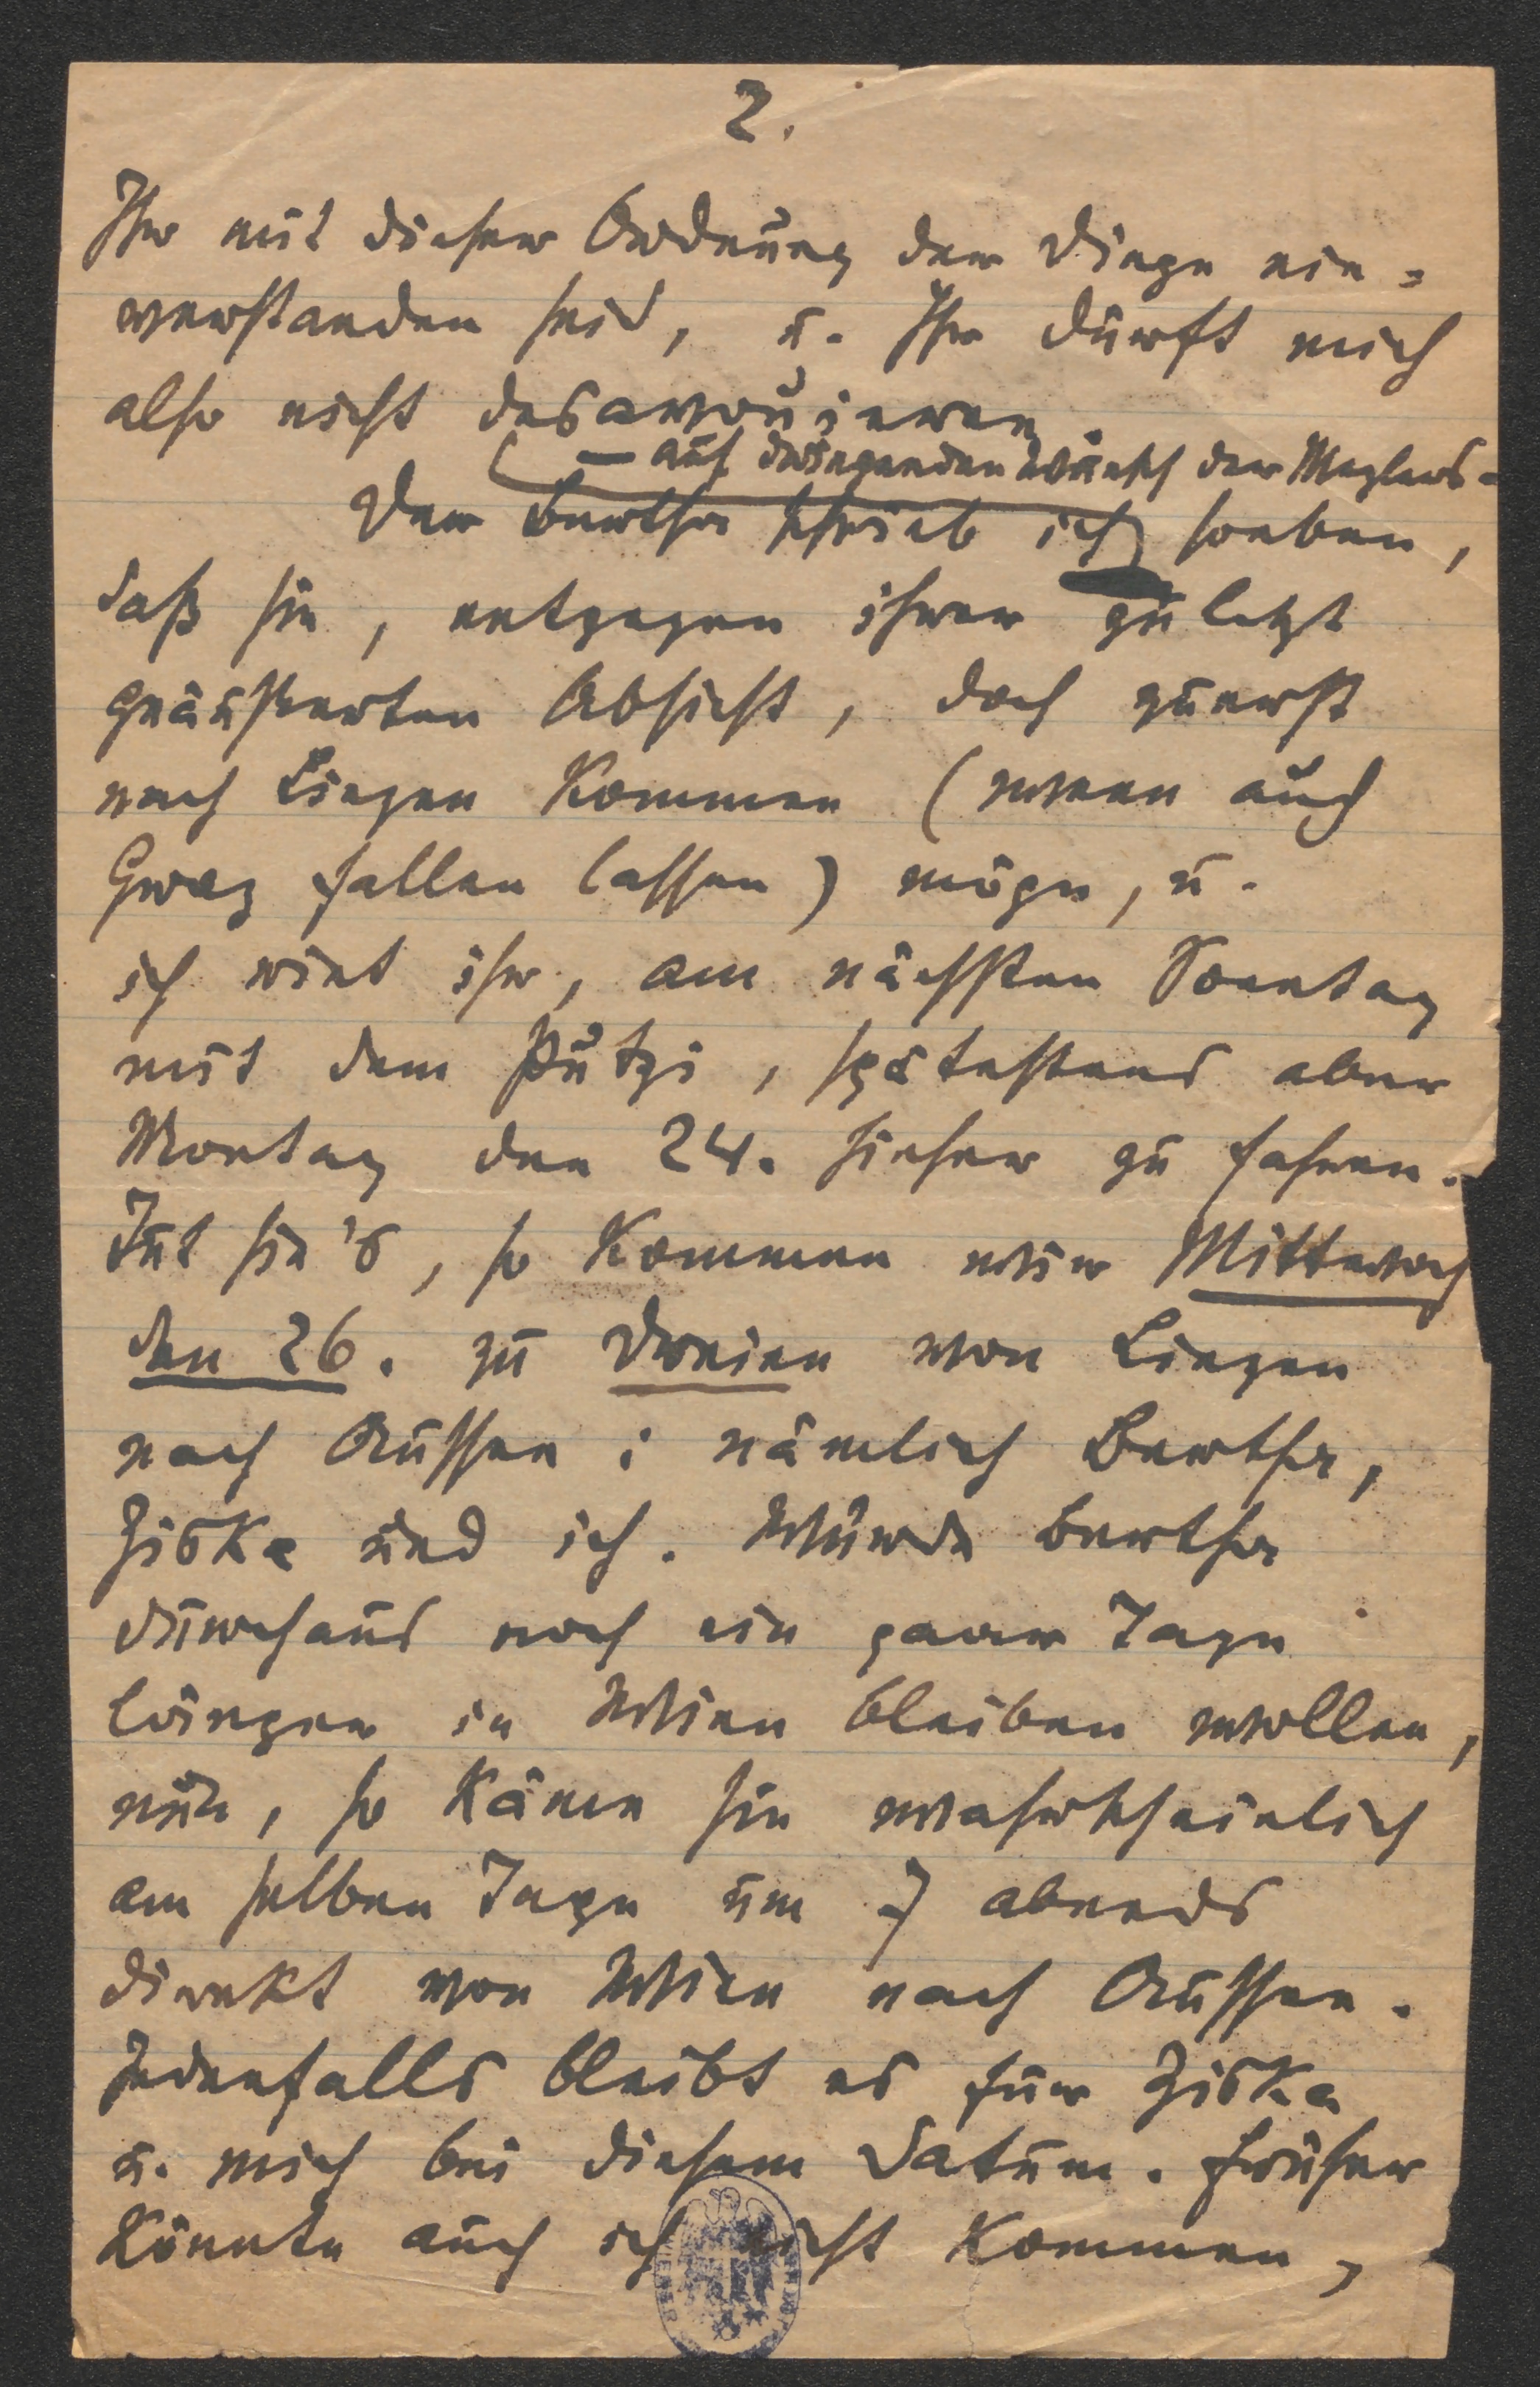 2.
Ihr mit dieser Ordnung der Dinge ein=
verstanden seid, u. Ihr dürft mich
also nicht desavouieren.
— auf dringenden Wunsch der Maylers –
Der Berthe schrieb ich soeben,
daß sie, entgegen ihrer zuletzt
geäußerten Absicht, doch zuerst
nach Liezen kommen (wenn auch
Graz fallen lassen) möge, u.
ich riet ihr, am nächsten Sonntag
mit dem Putzi, spätestens aber
Montag den 24. hieher zu fahren.
Tut sie's, so kommen wir Mittwoch
den 26. zu Dreien von Liezen
nach Aussee: nämlich Berthe,
Ziska und ich. Würde Berthe
durchaus noch ein paar Tage
länger in Wien bleiben wollen,
nun, so käme sie wahrscheinlich
am selben Tage um 7 abends
direkt von Wien nach Aussee.
Jedenfalls bleibt es für Ziska
u. mich bei diesem Datum. Früher
könnte auch ich nicht kommen,